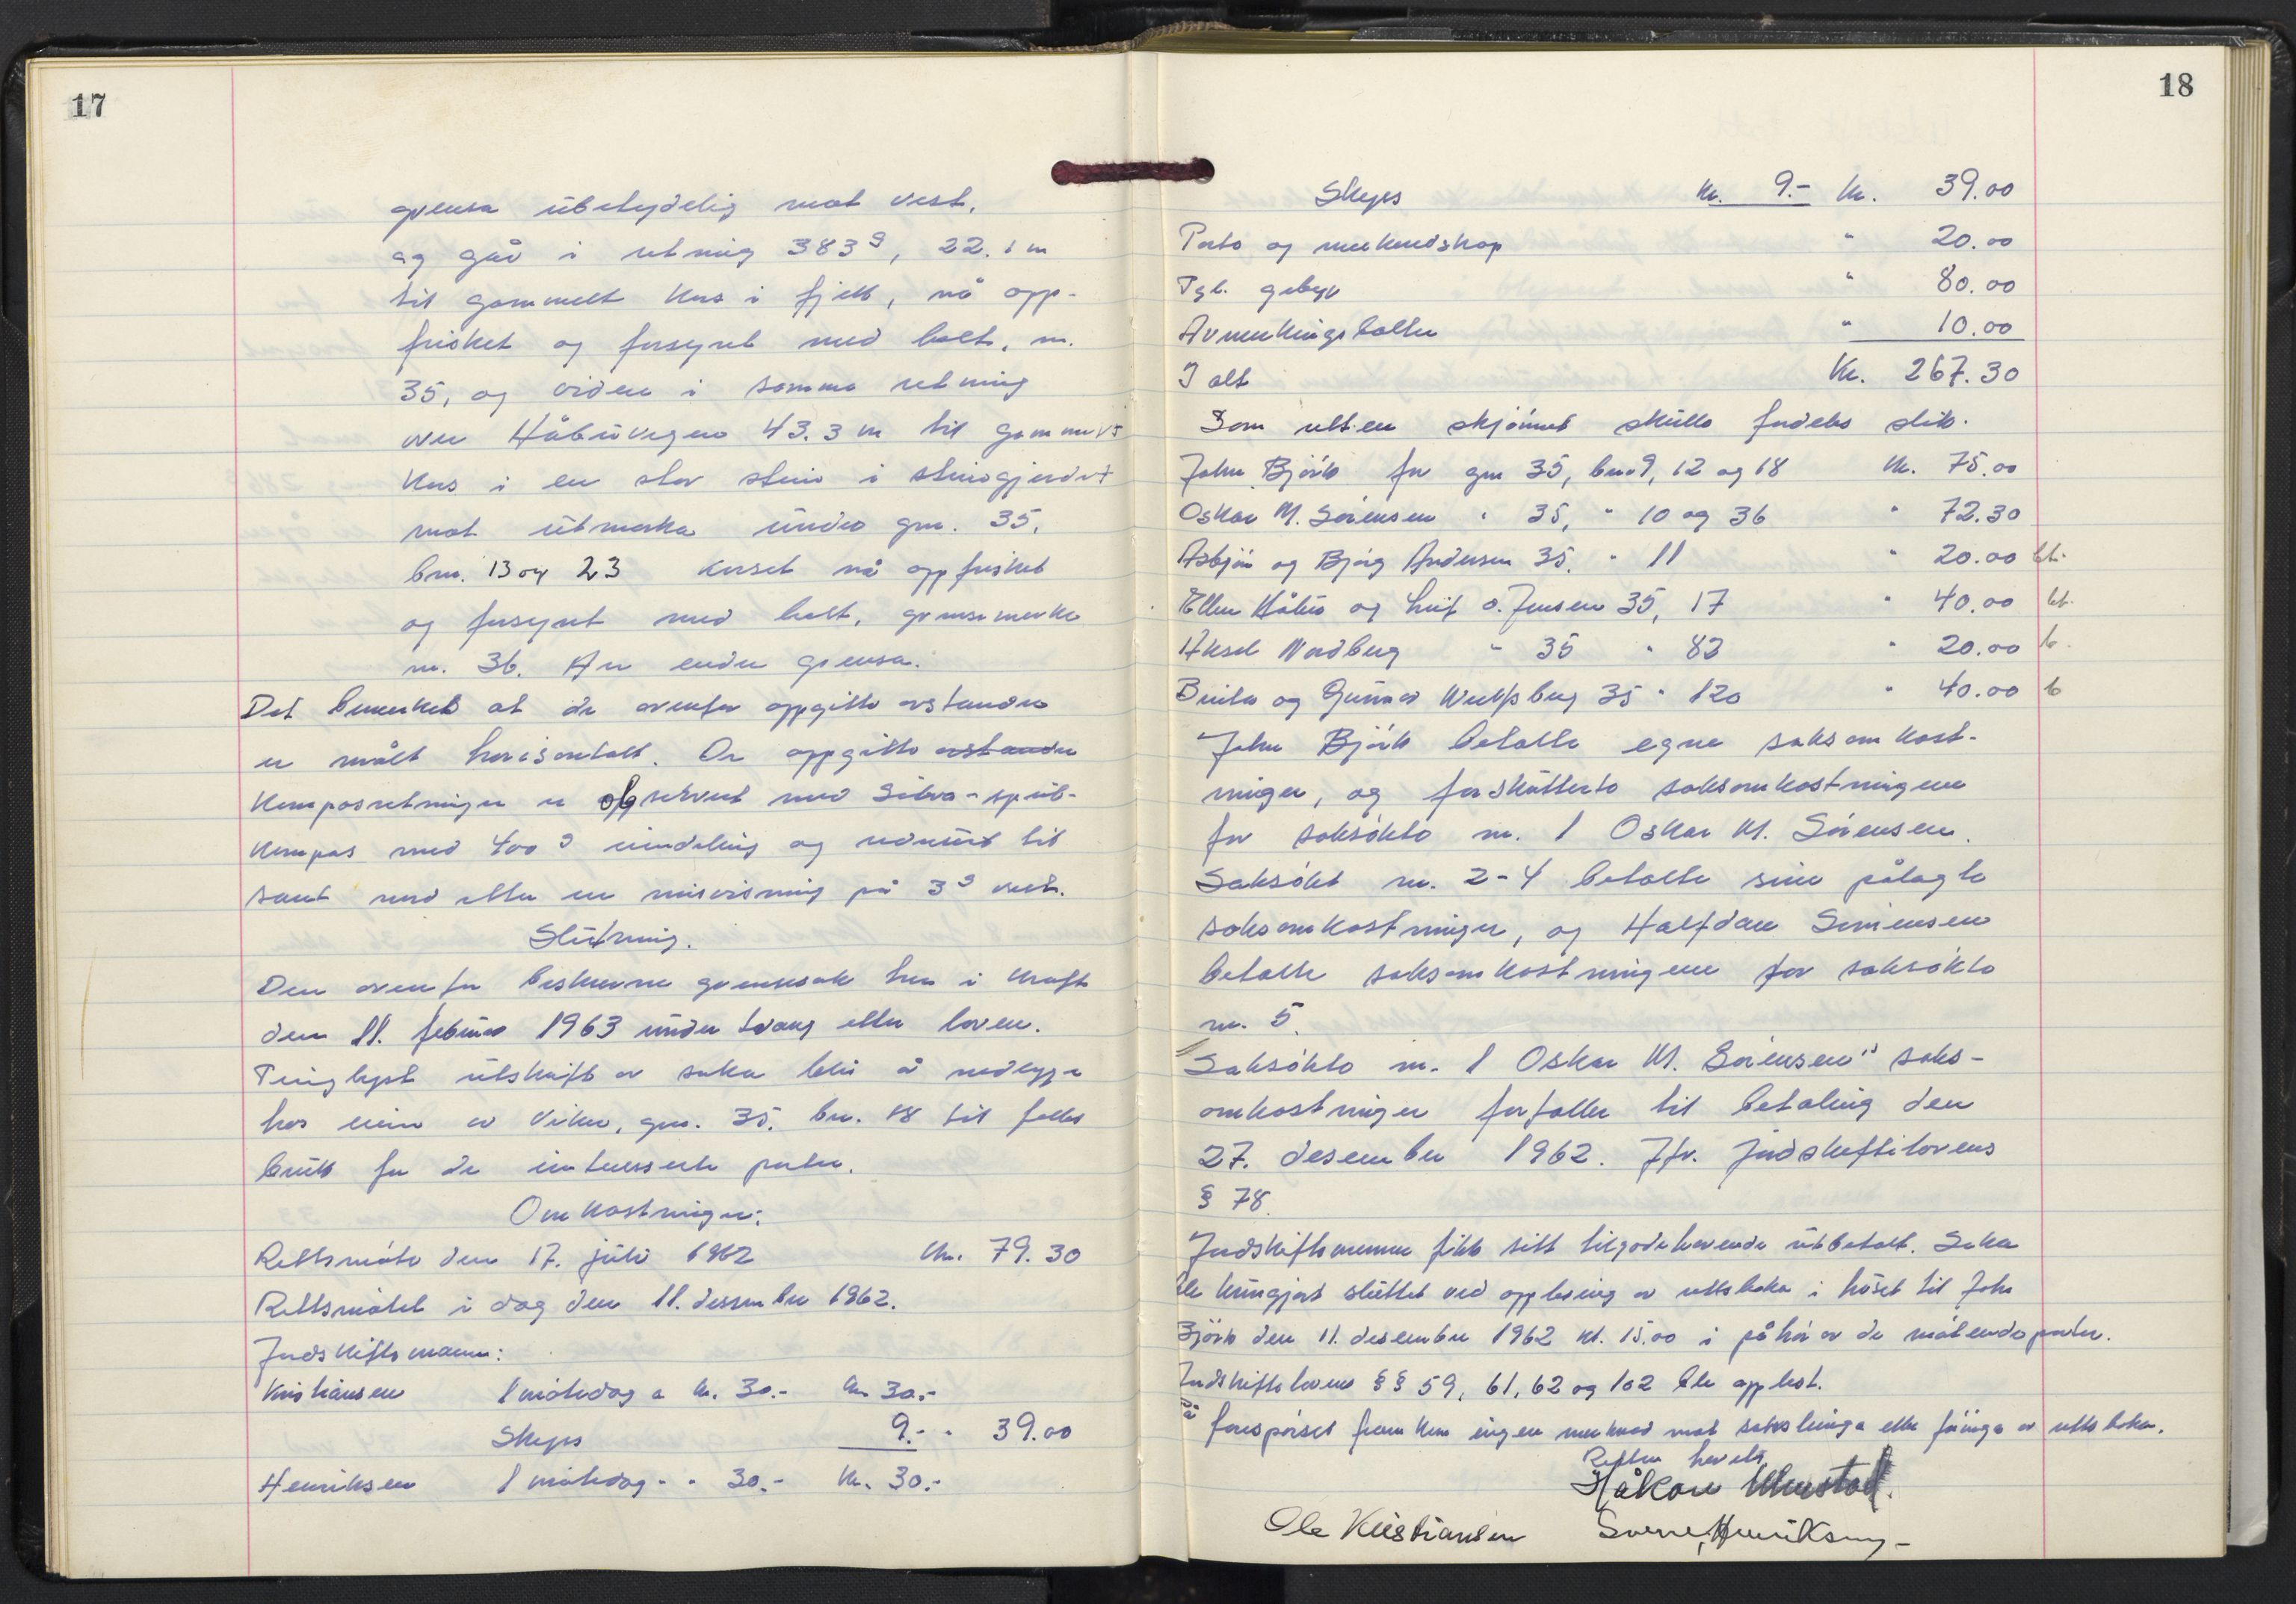 17
grensa ubetydelig mot vest,
og går i retning 383g, 22.1 m
til gammelt kors i fjell, nå opp-
frisket og forsynt med bolt, nr.
35, og videre i samme retning
over Håbuvegen 43.3 m til gammelt
kors i en stor stein i steingjerdet
mot utmarka under gnr. 35,
bnr. 13 og 23 korset nå oppfrisket
og forsynt med bolt, grensemerke
nr. 36. Her ender grensa.
Det bemerkes at de ovenfor oppgitte avstander
er målt horisontalt. De oppgitte avstander
kompasretninger er observert med Silva-sprit-
kompas med 400g inndeling og redusert til
sant nord etter en misvisning på 3g vest.
Slutning.
Den ovenfor beskrevne grensesak trer i kraft
den 11. februar 1963 under tvang etter loven.
Tinglyst utskrift av saka blir å nedlegge
hos eieren av Viken, gnr. 35, bnr. 18 til felles
bruk for de interesserte parter.
Omkostninger:
Rettsmøte den 17. juli 1962 kr. 79.30
Rettsmøtet i dag den 11. desember 1962.
Jordskiftemenn:
Kristiansen 1 møtedag a kr. 30.- kr. 30.-
Skyss 9.- " 39.00
Henriksen 1 møtedag - " 30.- kr. 30.-
18
Skyss kr. 9.- kr. 39.00
Porto og merkendskap " 20.00
Tgl. gebyr " 80.00
Avmerkingsbolter " 10.00
I alt Kr. 267.30
Som retten skjønnet skulle fordeles slik.
John Björk for gnr 35, bnr 9, 12 og 18 kr. 75.00
Oskar M. Sørensen " 35, " 10 og 36 " 72.30
Asbjørn og Bjørg Andersen 35. " 11 " 20.00 bt.
Ellen Håbu og Leif O. Jensen 35, 17 " 40.00 bt.
Aksel Nordberg " 35 " 82 " 20.00 b.
Berita og Gunnar Wulfsberg 35 " 120 " 40.00 b
John Björk betalte egne saksomkost-
ninger, og forskutterte saksomkostningene
for saksøkte nr. 1 Oskar M. Sørensen.
Saksøkt nr. 2-4 betalte sine pålagte
saksomkostninger, og Halfdan Simensen
betalte saksomkostningene for saksøkte
nr. 5.
Saksøkte nr. 1 Oskar M. Sørensen's saks-
omkostninger forfaller til betaling den
27. desember 1962. Jfr. Jordskiftelovens
§ 78.
Jordskiftemennene fikk sitt tilgodehavende utbetalt. Saka
ble kunngjort sluttet ved opplesing av rettsboka i huset til John
Björk den 11. desember 1962 kl. 15.00 i påhør av de møtende parter.
Jordskiftelovens §§ 59, 61, 62 og 102 ble opplest.
På forespørsel fremkom ingen merknad mot saksbehandlinga eller føringa av rettsboka.
Retten hevet.
Håkon Ulmestad.
Ole Kristiansen Sverre Henriksen